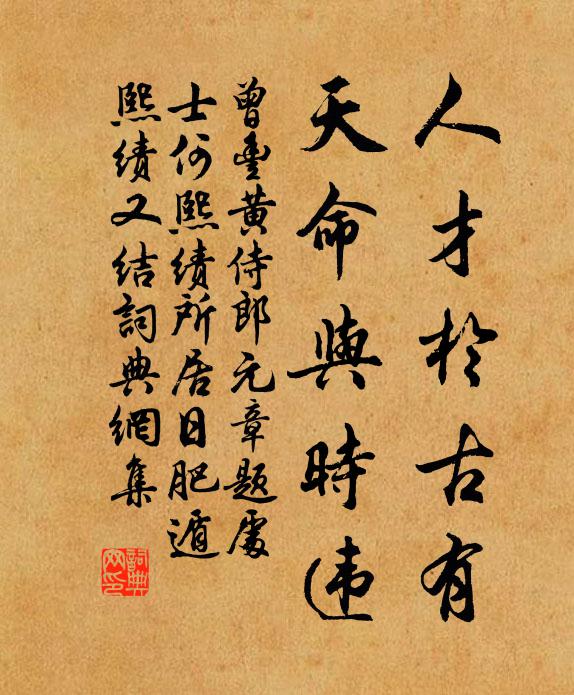 人才於古有
天命與時违
曾豐黄侍郎元章题處
士何熙績所居日肥遁
熙績又结詞典網集
詞典网印